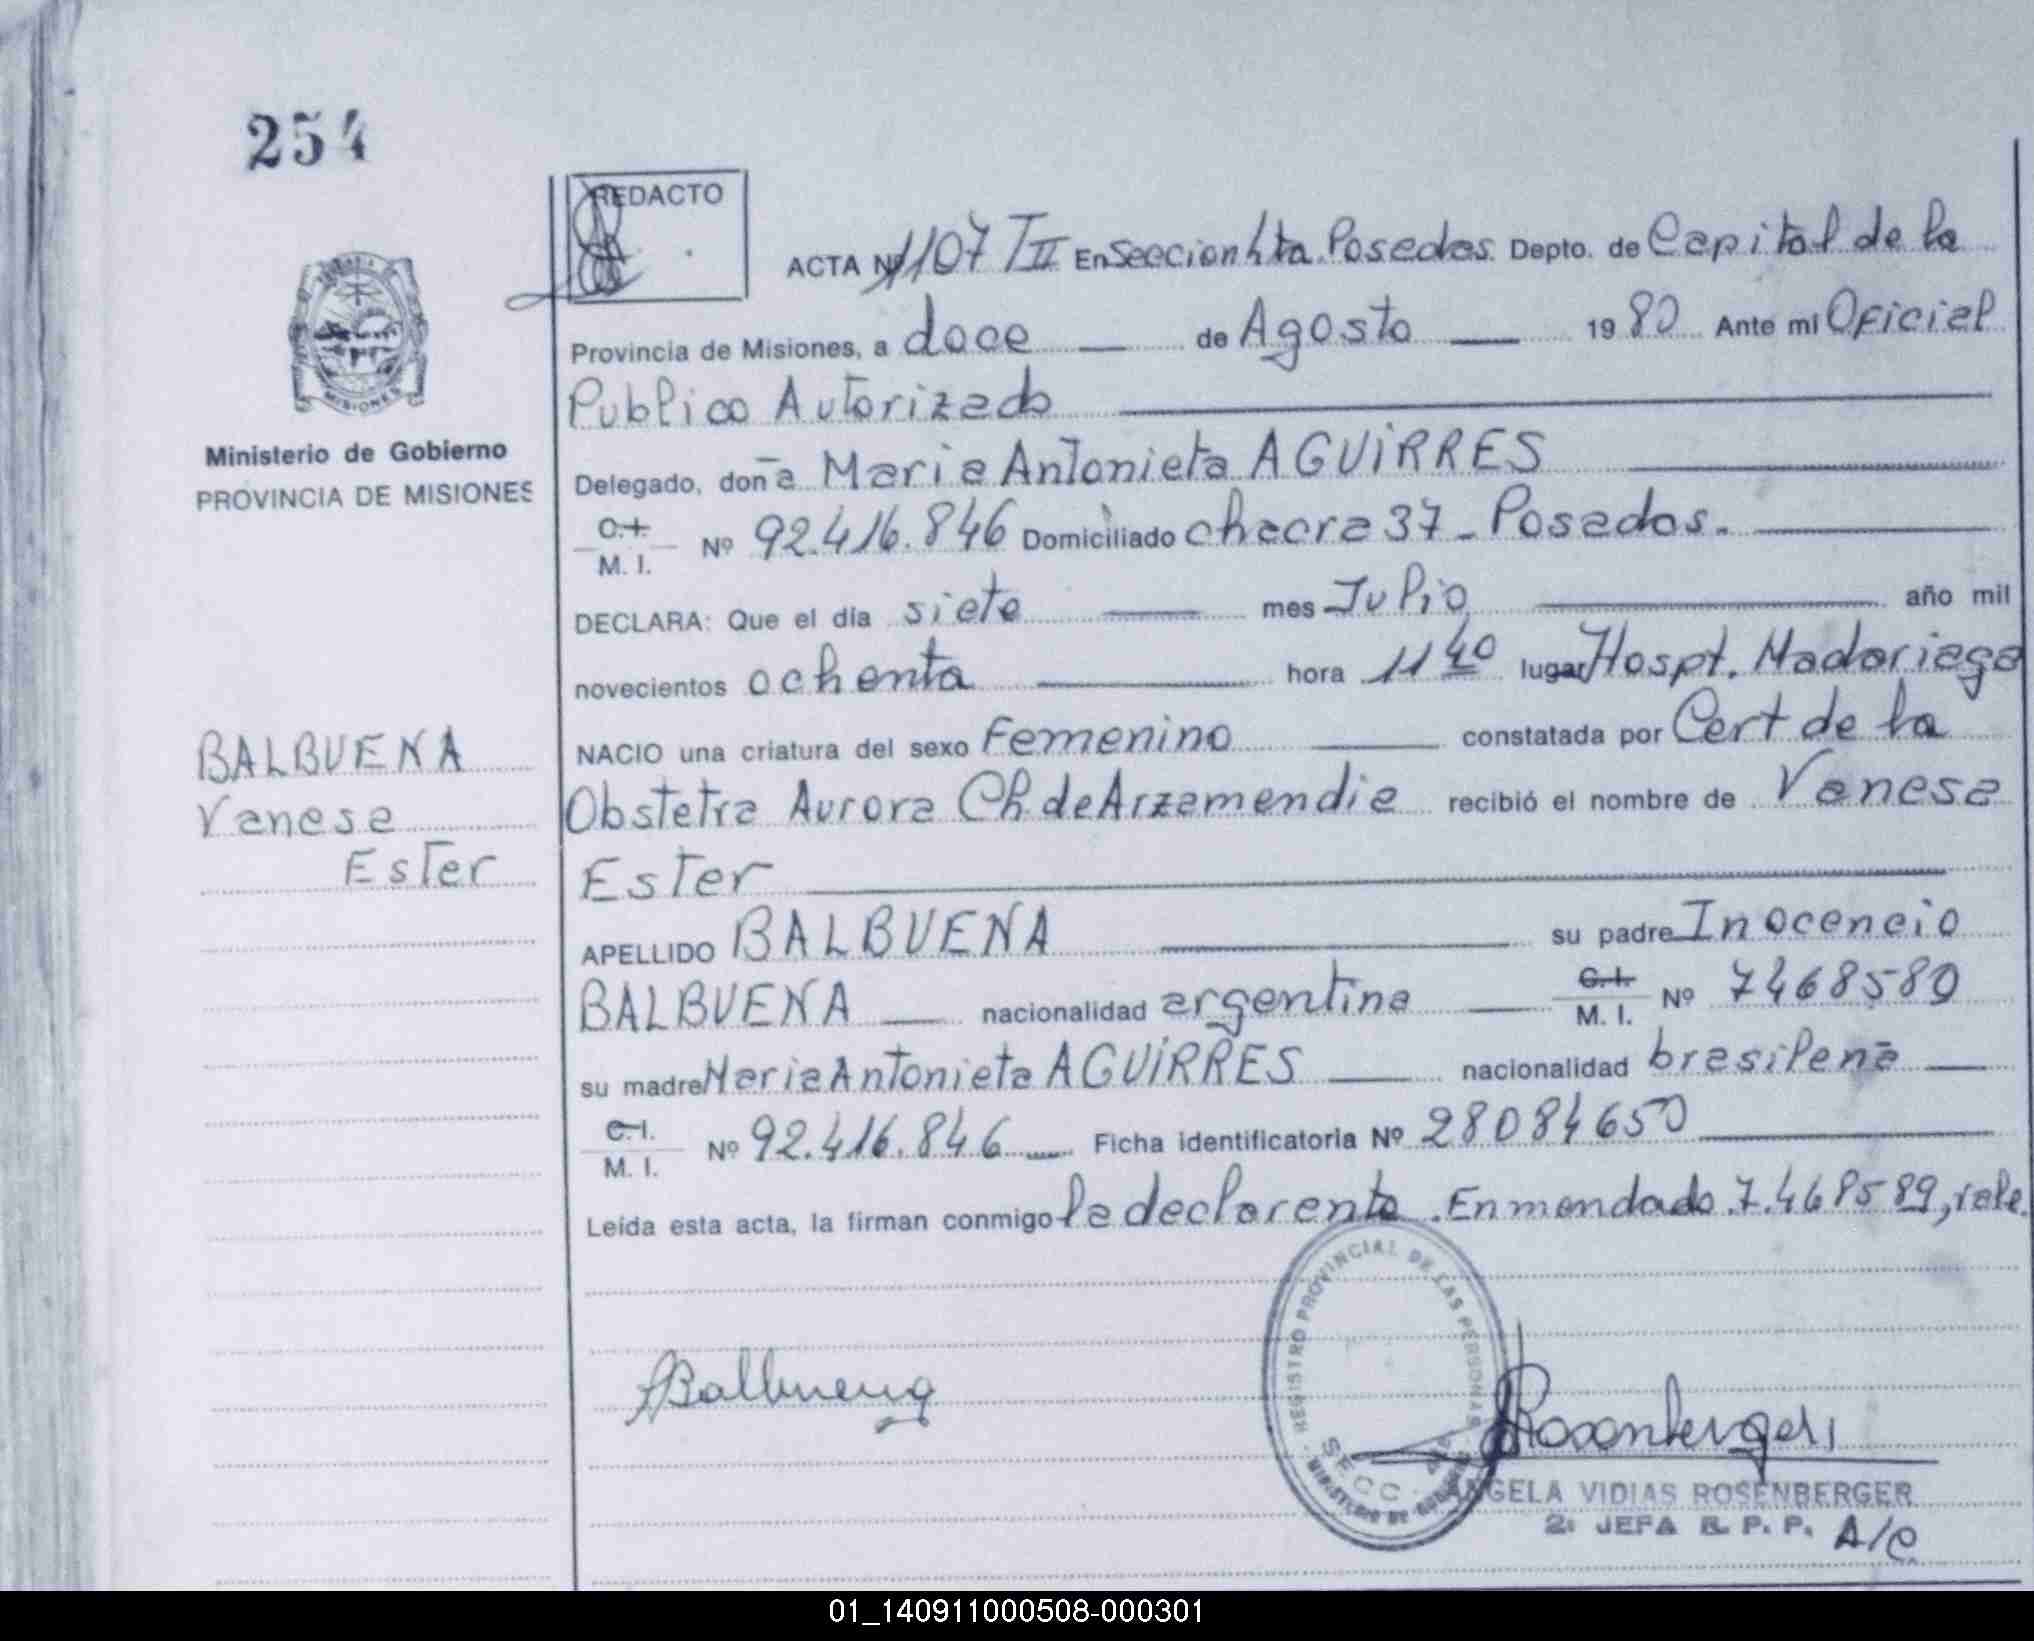 254
REDACTO
ACTA Nº 1107 TII En Seccion 4ta. Posadas. Depto. de Capital de la
Provincia de Misiones, a doce de Agosto 1980 Ante mi Oficial
Publico Autorizado
Ministerio de Gobierno
PROVINCIA DE MISIONES
Delegado, doña Maria Antonieta AGUIRRES
C.I. M. I. Nº 92.416.846 Domiciliado chacra 37 - Posadas.
DECLARA: Que el día siete mes Julio año mil
novecientos ochenta hora 11 40 lugar Hospt. Madariaga
NACIO una criatura del sexo Femenino constatada por Cert de la
Obstetra Aurora Ch. de Arzamendia recibió el nombre de Vanesa
Ester
BALBUENA
Vanesa
Ester
APELLIDO BALBUENA su padre Inocencio
BALBUENA nacionalidad argentina C.I. M. I. Nº 7468589
su madre Maria Antonieta AGUIRRES nacionalidad brasileña
C.I. M. I. Nº 92.416.846 Ficha identificatoria Nº 28084650
Leída esta acta, la firman conmigo la declarente. Enmendado.7.468589, vale.
REGISTRO PROVINCIAL DE LAS PERSONAS
SECC. 4ta
MINISTERIO DE GOBIERNO
ABalbuena
Rosenberger
ANGELA VIDIAS ROSENBERGER
2: JEFA R. P. P. A/C
01_140911000508-000301